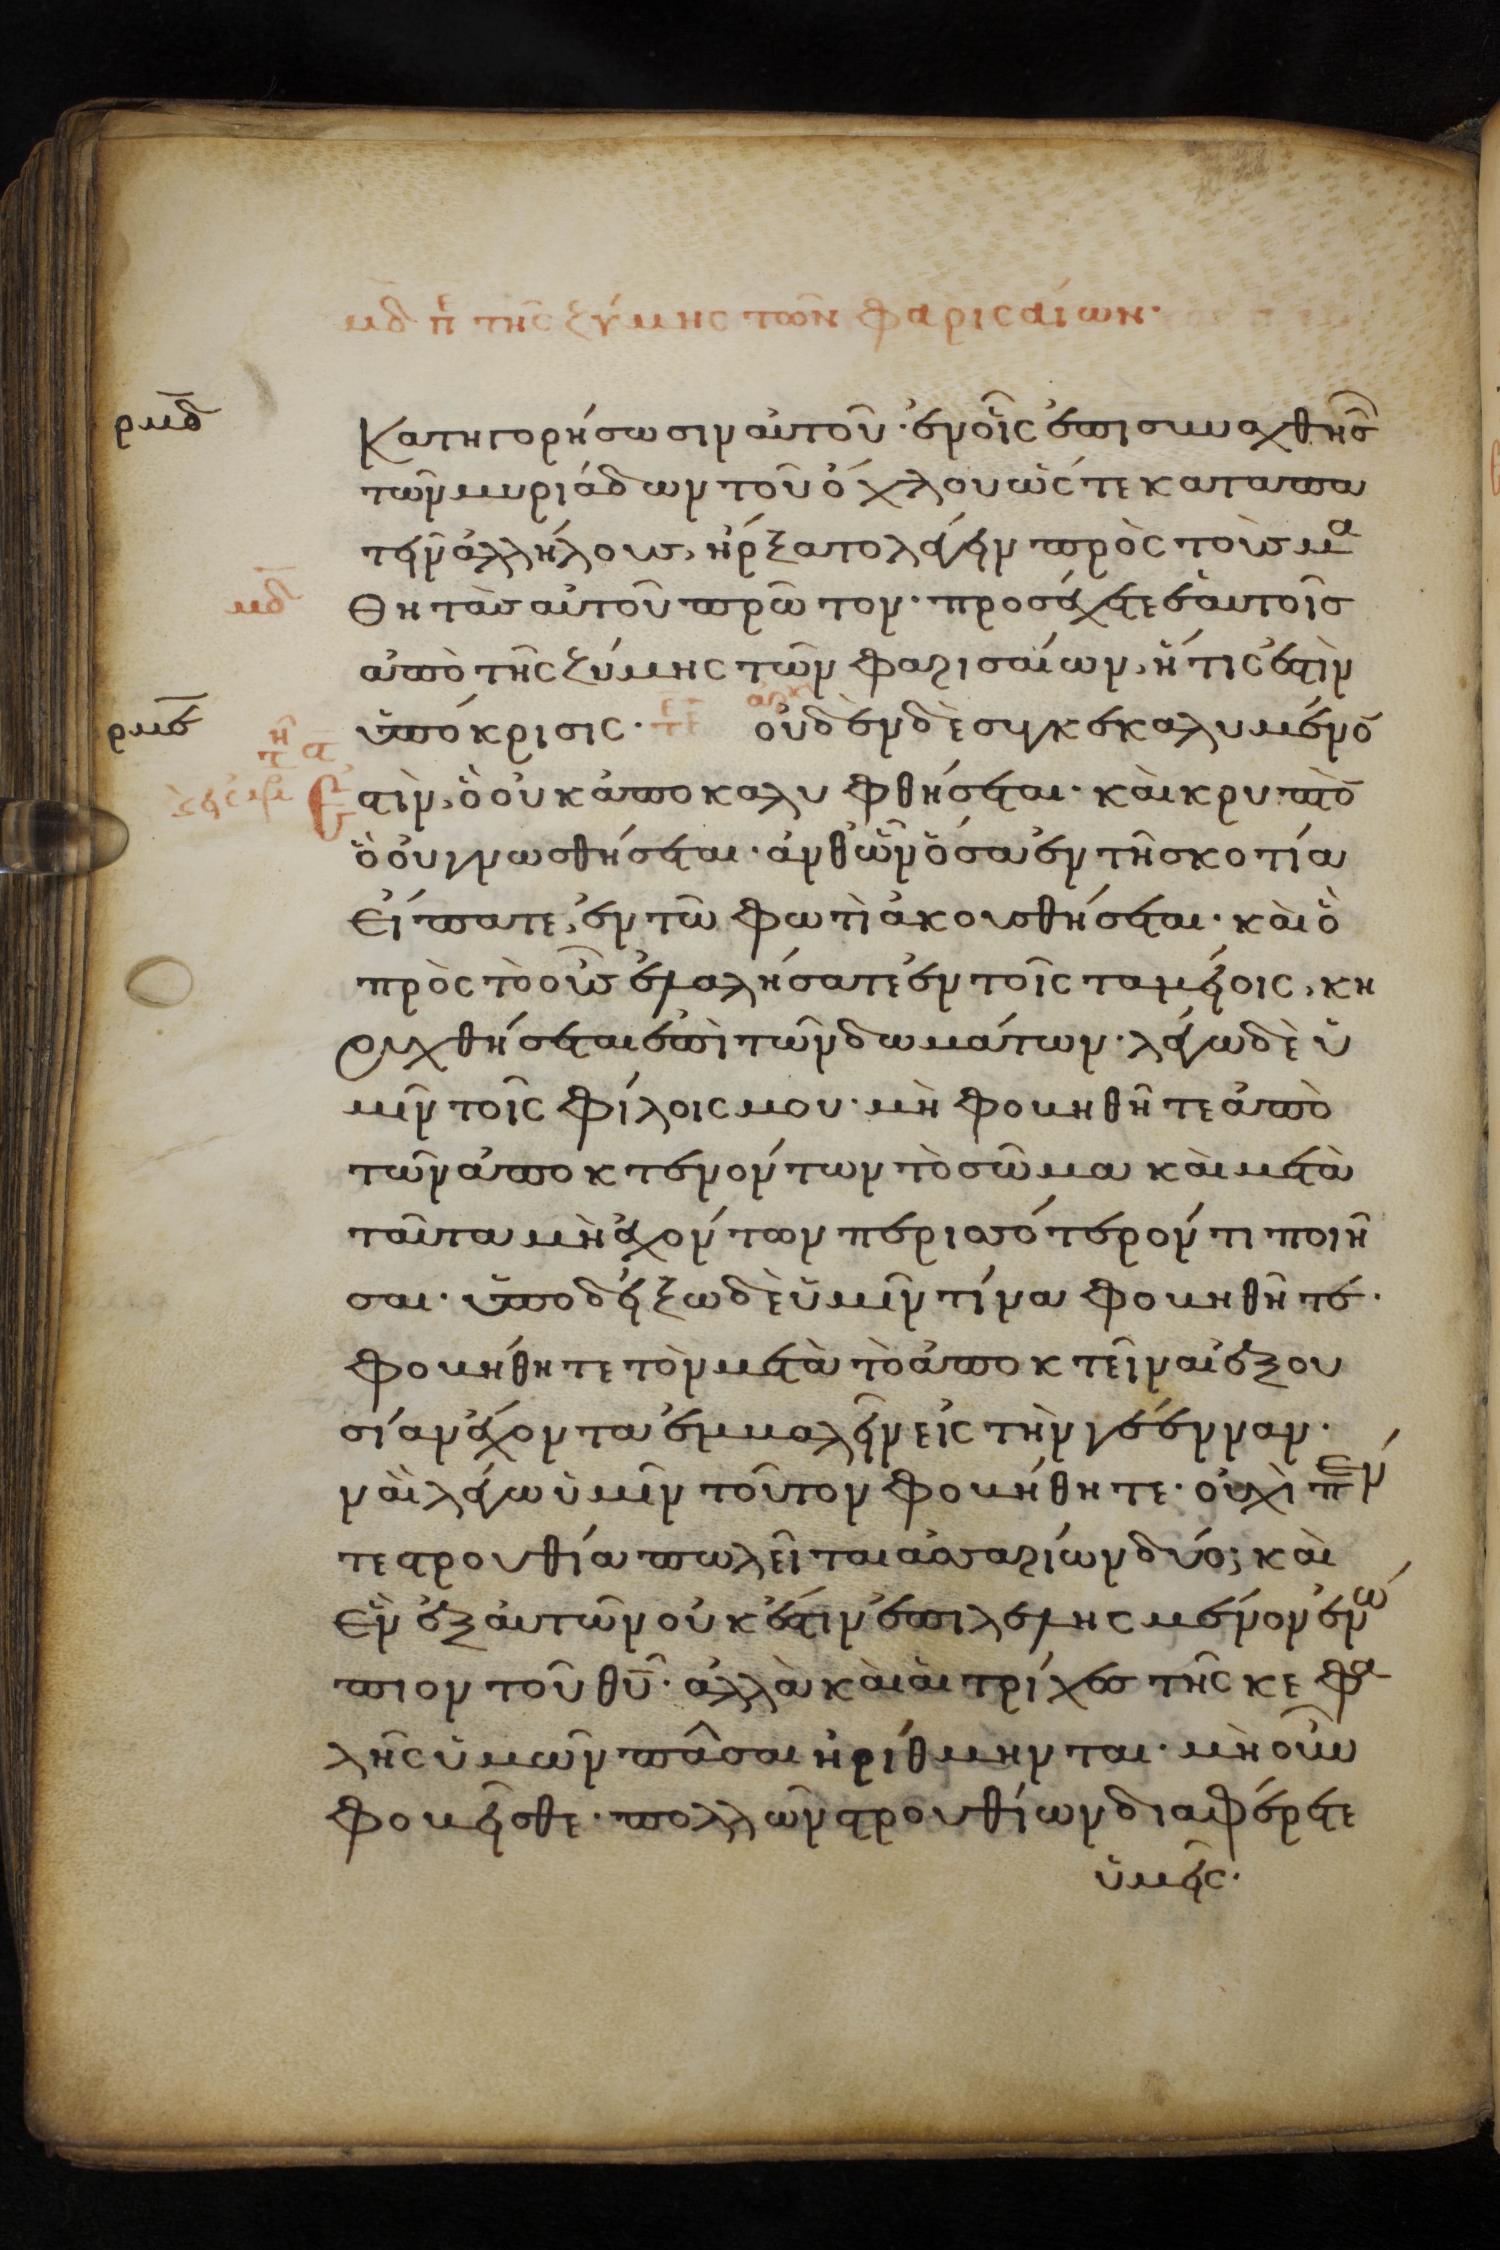 μδ π̣ τῆς ζύμης τῶν φαρισαίων·
ρμδ
κατηγορήσωσιν αὐτοῦ· ἐν οἷς ἐπισυναχθησ
τῶν μυριάδων τοῦ ὄχλου ὥστε καταπα
τεῖν ἀλλήλους, ἤρξατο λέγειν πρὸς τοὺς μα
μδ
θητὰς αὐτοῦ πρῶτον· προσέχετε ἑαυτοῖς
ἀπὸ τῆς ζύμης τῶν φαρισαίων, ἥτις ἐστὶν
ρμε
ὑπόκρισις· τε οὐδὲν δὲ συγκεκαλυμμένο̄
ἐστὶν, ὃ οὐκ ἀποκαλυφθήσεται· καὶ κρυπτὸ̄
ὃ οὐ γνωσθήσεται· ἀνθ ὧν ὅσα ἐν τῆ σκοτία
εἴπατε, ἐν τῶ φωτὶ ἀκουσθήσεται· καὶ ὃ
πρὸς τὸ οὖς ἐλαλήσατε ἐν τοῖς ταμείοις, κη
ρυχθήσεται ἐπὶ τῶν δωμάτων· λέγω δὲ ὑ
μῖν τοῖς φίλοις μου· μὴ φοβηθῆτε ἀπὸ
τῶν ἀποκτενόντων τὸ σῶμα καὶ μετὰ
ταῦτα μὴ ἐχόντων περισσότερόν τι ποιῆ
σαι· ὑποδείξω δὲ ὑμῖν τίνα φοβηθῆτε·
φοβήθητε τὸν μετὰ τὸ ἀποκτεῖναι ἐξου
σίαν ἔχοντα ἐμβαλεῖν εἰς τὴν γέενναν·
ναὶ λέγω ὑμῖν τοῦτον φοβήθητε· οὐχὶ πέν
τε στρουθία πωλεῖται ἀσσαρίων δύο; καὶ
ἓν ἐξ αὐτῶν οὐκ ἔστιν ἐπιλελησμένον ἐνώ
πιον τοῦ θῡ· ἀλλὰ καὶ αἱ τρίχες τῆς κεφα
λῆς ὑμῶν πᾶσαι ἠρίθμηνται· μὴ οὖν
φοβεῖσθε· πολλῶν στρουθίων διαφέρετε
ὑμεῖς·